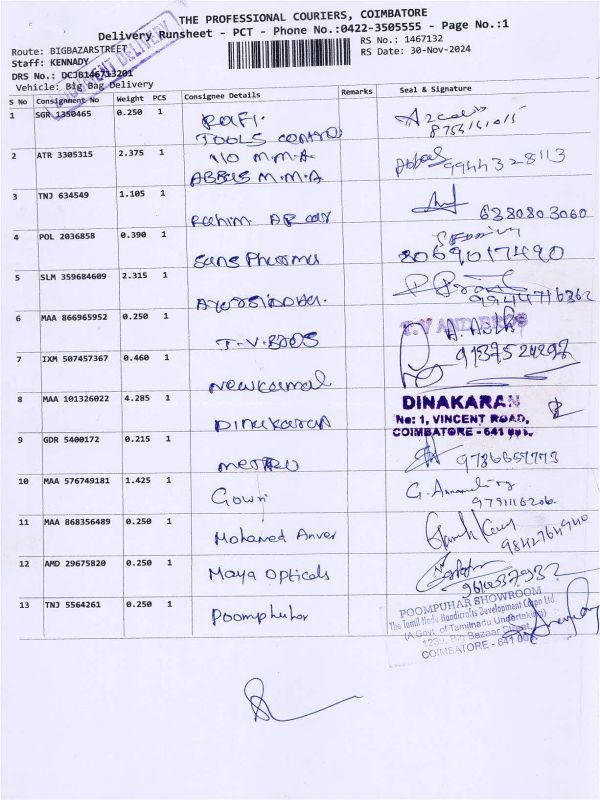 THE PROFESSIONAL COURIERS, COIMBATORE
Delivery Runsheet - PCT - Phone No.:0422-3505555 - Page No.:1
Route: BIGBAZARSTREET
RS No.: 1467132
Staff: KENNADY
RS Date: 30-Nov-2024
DRS No.: DCJB146713201
Vehicle: Big Bag Delivery
DOCUMENT DELIVERY
S No Consignment No Weight PCS Consignee Details Remarks Seal & Signature
1 SGR 1350465 0.250 1 RAFI.
TOOLS
2 ATR 3305315 2.375 1 N/O M.M.A
ABBAS M.M.A Abbas 9944328113
3 TNJ 634549 1.105 1 Rahim 6380803060
4 POL 2036858 0.390 1 Suns Pharma 8069017490
5 SLM 359684609 2.315 1 9944716862
6 MAA 866965952 0.250 1 T.V.BROS
7 IXM 507457367 0.460 1 Newkamal
8 MAA 101326022 4.285 1 Dinakaran DINAKARAN
No: 1, VINCENT ROAD,
COIMBATORE - 641 001.
9 GDR 5400172 0.215 1 metro 9786657773
10 MAA 576749181 1.425 1 Gowri G.
9791116206
11 MAA 868356489 0.250 1 Mohamed Anver 9842764940
12 AMD 29675820 0.250 1 Maya Opticals
13 TNJ 5564261 0.250 1 Poompuhar POOMPUHAR SHOWROOM
The Tamil Nadu Handicrafts Development Corpn Ltd.
(A Govt. of Tamilnadu Undertaking)
Big Bazaar Street,
COIMBATORE - 641 001.